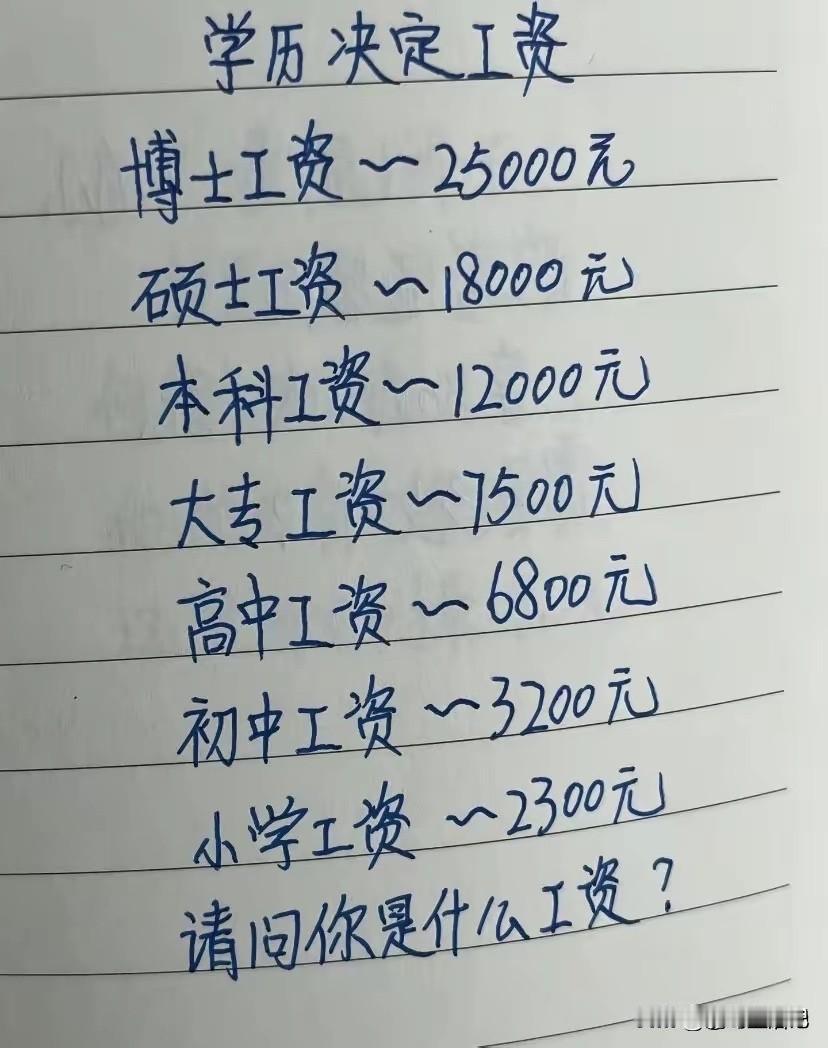 学历决定工资
博士工资~25000元
硕士工资~18000元
本科工资~12000元
大专工资~7500元
高中工资~6800元
初中工资~3200元
小学工资~2300元
请问你是什么工资?